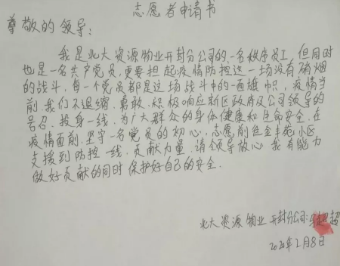 志愿者申请书
尊敬的领导：
我是北大资源物业开封分公司的一名秩序员工，但同时
也是一名共产党员，更要担起疫情防控这一场没有硝烟
的战斗，每一个党员都是这场战斗中的一面旗帜，疫情当
前，我们不退缩，勇敢、积极响应新区政府及公司领导的
号召，投身一线，为广大群众的身体健康和生命安全，在
疫情面前，坚守一名党员的初心，志愿前往金丰苑小区
支援到防控一线，贡献力量，请领导放心，我有能力
做好贡献的同时保护好自己的安全.
北大资源物业开封分公司
2月8日